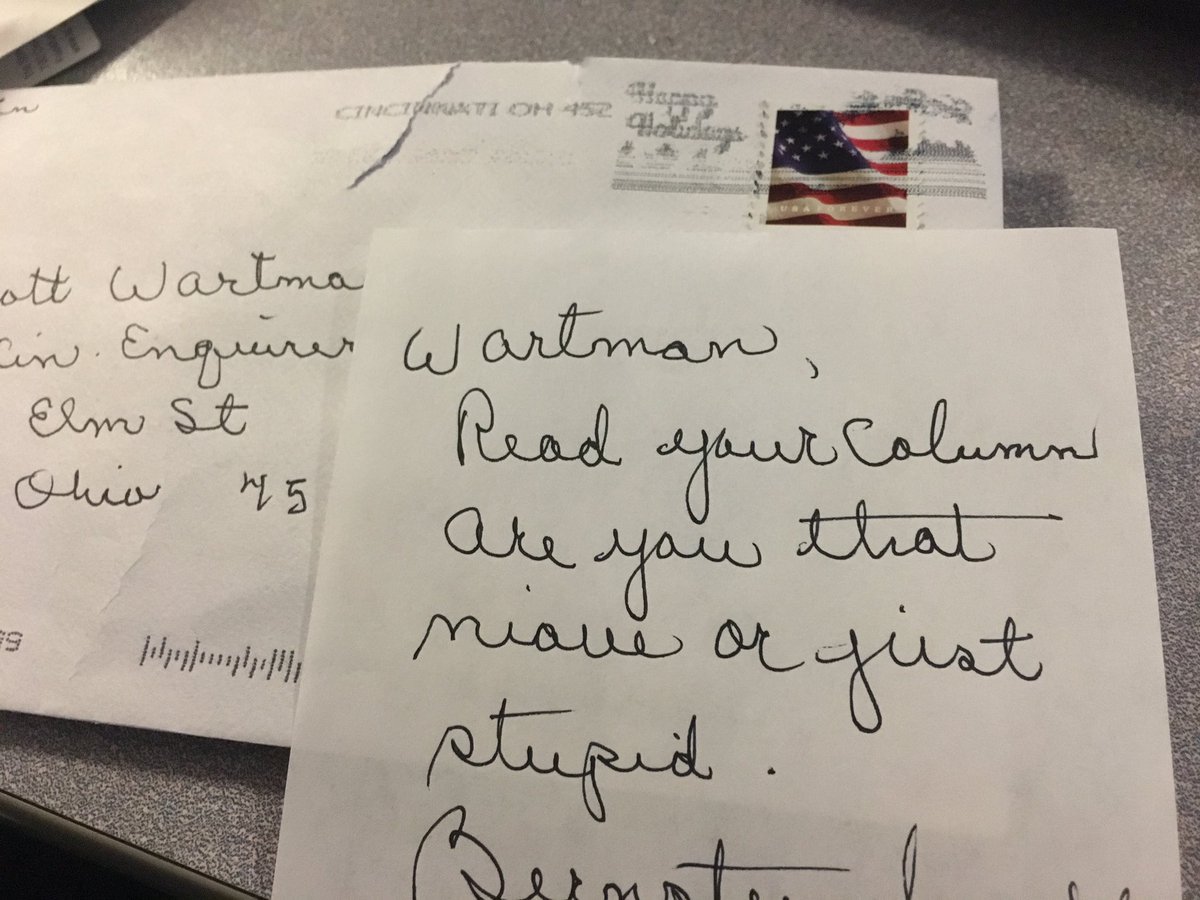 CINCINNATI OH 452
Happy
Holidays
USA FOREVER
ott Wartma
Cin. Enquirer
Elm St
Ohio 45
Wartman,
Read your Column
Are you that
niave or just
stupid.